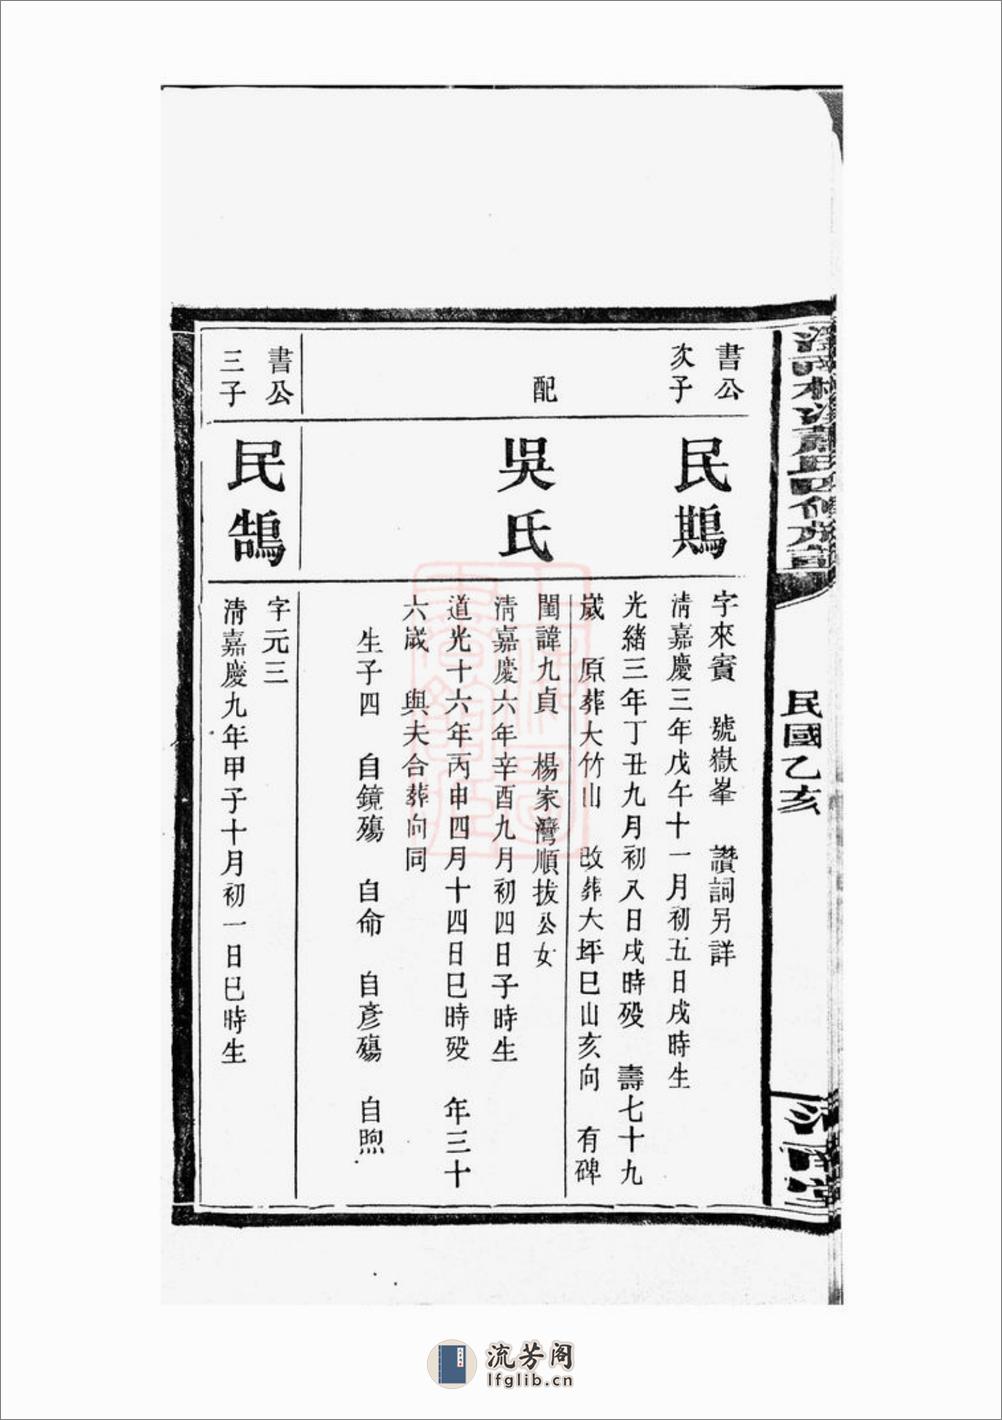 民國乙亥
書公
次子
民鷴
字來賓　號嶽峯　讚詞另詳
清嘉慶三年戊午十一月初五日戌時生
光緒三年丁丑九月初八日戌時殁　壽七十九
歲　原葬大竹山　改葬大坪巳山亥向　有碑
配
吳氏
閨諱九貞　楊家灣順拔公女
清嘉慶六年辛酉九月初四日子時生
道光十六年丙申四月十四日巳時殁　年三十
六歲　與夫合葬向同
生子四　自鏡殤　自命　自彥殤　自煦
書公
三子
民鵠
字元三
清嘉慶九年甲子十月初一日巳時生
流芳阁
lfglib.cn